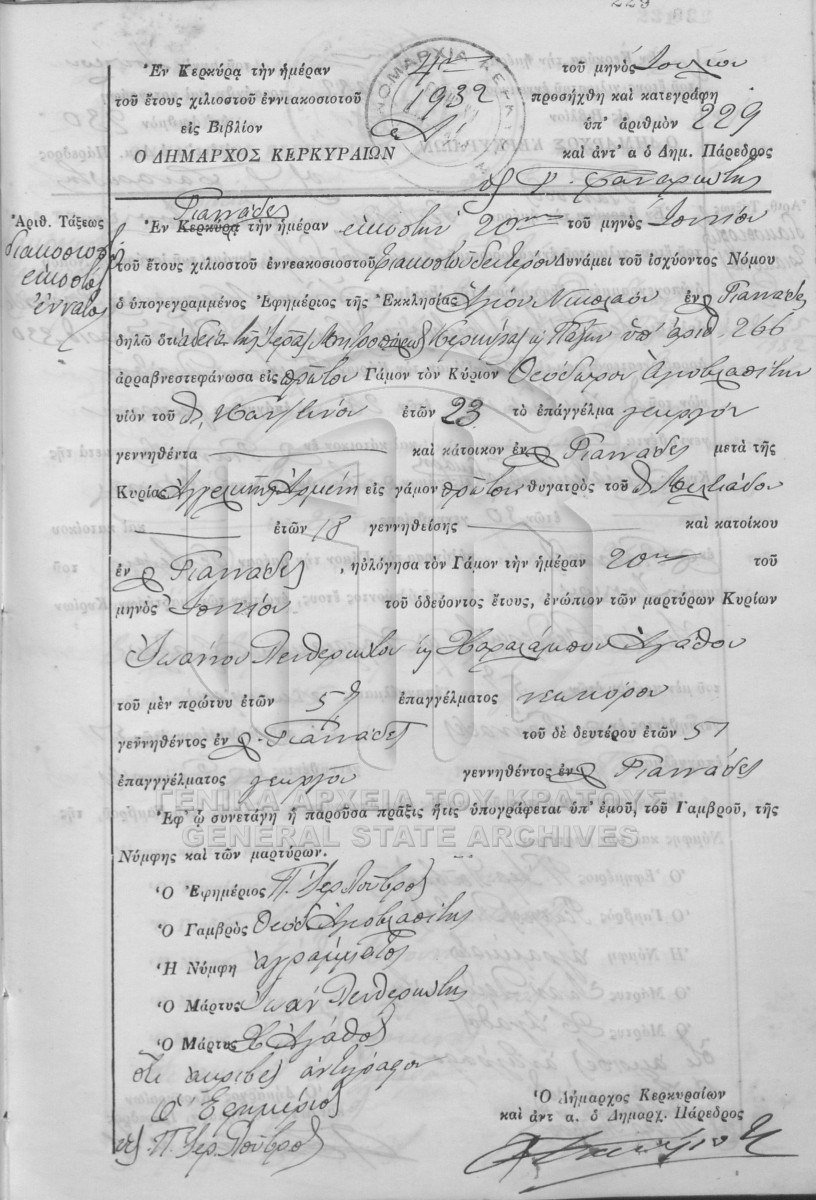 229
Ἐν Κερκύρᾳ τὴν ἡμέραν 4ην τοῦ μηνὸς Ἰουλίου
τοῦ ἔτους χιλιοστοῦ ἐννιακοσιοτοῦ 1932 προσήχθη καὶ κατεγράφη
εἰς Βιβλίον ὑπ' ἀριθμὸν 229
Ο ΔΗΜΑΡΧΟΣ ΚΕΡΚΥΡΑΙΩΝ καὶ ἀντ' α ὁ Δημ. Πάρεδρος
ΝΟΜΑΡΧΙΑ
Γιαννάδες
Ἀριθ. Τάξεως Ἐν Κερκύρᾳ τὴν ἡμέραν εἰκοστὴν 20ην τοῦ μηνὸς Ἰουνίου
διακοσιοστὸς
εἰκοστὸς
ἔννατος
τοῦ ἔτους χιλιοστοῦ ἐννεακοσιοστοῦ τριακοστοῦ δευτέρου Δυνάμει τοῦ ἰσχύοντος Νόμου
ὁ ὑπογεγραμμένος Ἐφημέριος τῆς Ἐκκλησίας Ἁγίου Νικολάου ἐν Γιαννάδες
δηλῶ ὅτι ἀδείᾳ τῆς Ἱερᾶς Μητροπόλεως Κερκύρας κ Παξῶν ὑπ' ἀριθ. 266
ἀρραβνεστεφάνωσα εἰς πρῶτον Γάμον τὸν Κύριον Θεόδωρον Ἀγιοβλασίτην
υἱὸν τοῦ Κων/τίνου ἐτῶν 23 τὸ ἐπάγγελμα γεωργὸν
γεννηθέντα καὶ κάτοικον ἐν Γιαννάδες μετὰ τῆς
Κυρίας Ἀγγελικῆς Ἀρμένη εἰς γάμον πρῶτον θυγατρὸς τοῦ Μιλτιάδου
ἐτῶν 18 γεννηθείσης καὶ κατοίκου
ἐν Γιαννάδες, ηὐλόγησα τὸν Γάμον τὴν ἡμέραν 20ην τοῦ
μηνὸς Ἰουνίου τοῦ ὁδεύοντος ἔτους, ἐνώπιον τῶν μαρτύρων Κυρίων
Ἰωάννου Πενθερουδάκη κ Χαραλάμπου Ἀγάθου
τοῦ μὲν πρώτυυ ἐτῶν ἐπαγγέλματος νεωκόρου
γεννηθέντος ἐν Γιαννάδες τοῦ δὲ δευτέρου ἐτῶν 51
ἐπαγγγέλματος γεωργοῦ γεννηθέντος ἐν Γιαννάδες
ΓΕΝΙΚΑ ΑΡΧΕΙΑ ΤΟΥ ΚΡΑΤΟΥΣ
GENERAL STATE ARCHIVES
Ἐφ' ᾧ συνετάγη ἡ παροῦσα πρᾶξις ἥτις ὑπογράφεται ὑπ' ἐμοῦ, τοῦ Γαμβροῦ, τῆς
Νύμφης καὶ τῶν μαρτύρων.
Ὁ Ἐφημέριος
Ὁ Γαμβρὸς Θεόδ Ἀγιοβλασίτης
Ἡ Νύμφη ἀγράμματος
Ὁ Μάρτυς Ἰωάν
Ὁ Μάρτυς Χ Ἀγάθος
ὅτι ἀκριβὲς ἀντίγραφον
Ὁ Ἐφημέριος
Ὁ Δήμαρχος Κερκυραίων
καὶ ἀντ α. ὁ Δημαρχ. Πάρεδρος